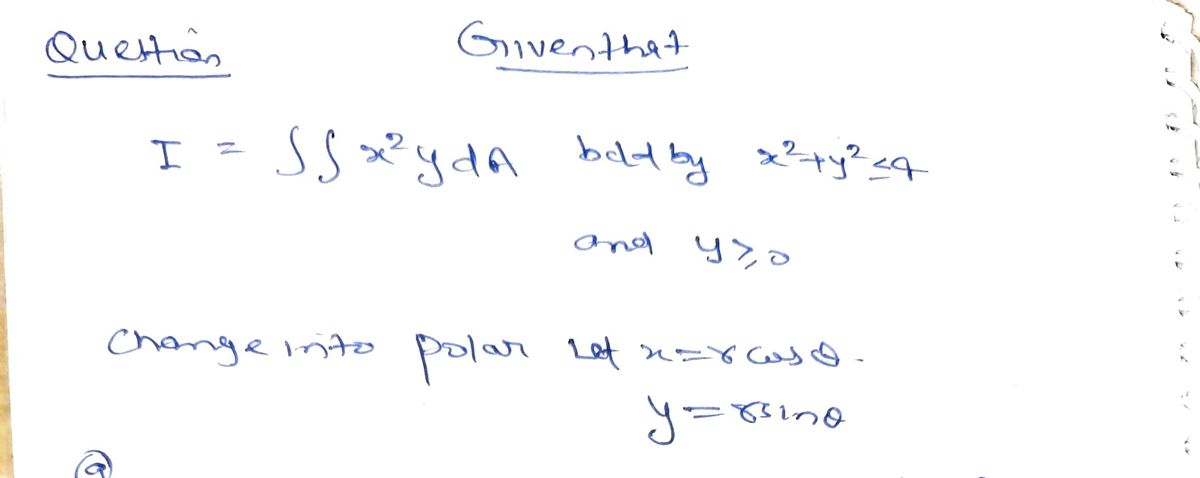 Question Given that
I = ∫∫ x²y dA bdd by x²+y² ≤ 9
and y ≥ 0
Change into polar Let x = r cos θ.
y = r sin θ
@